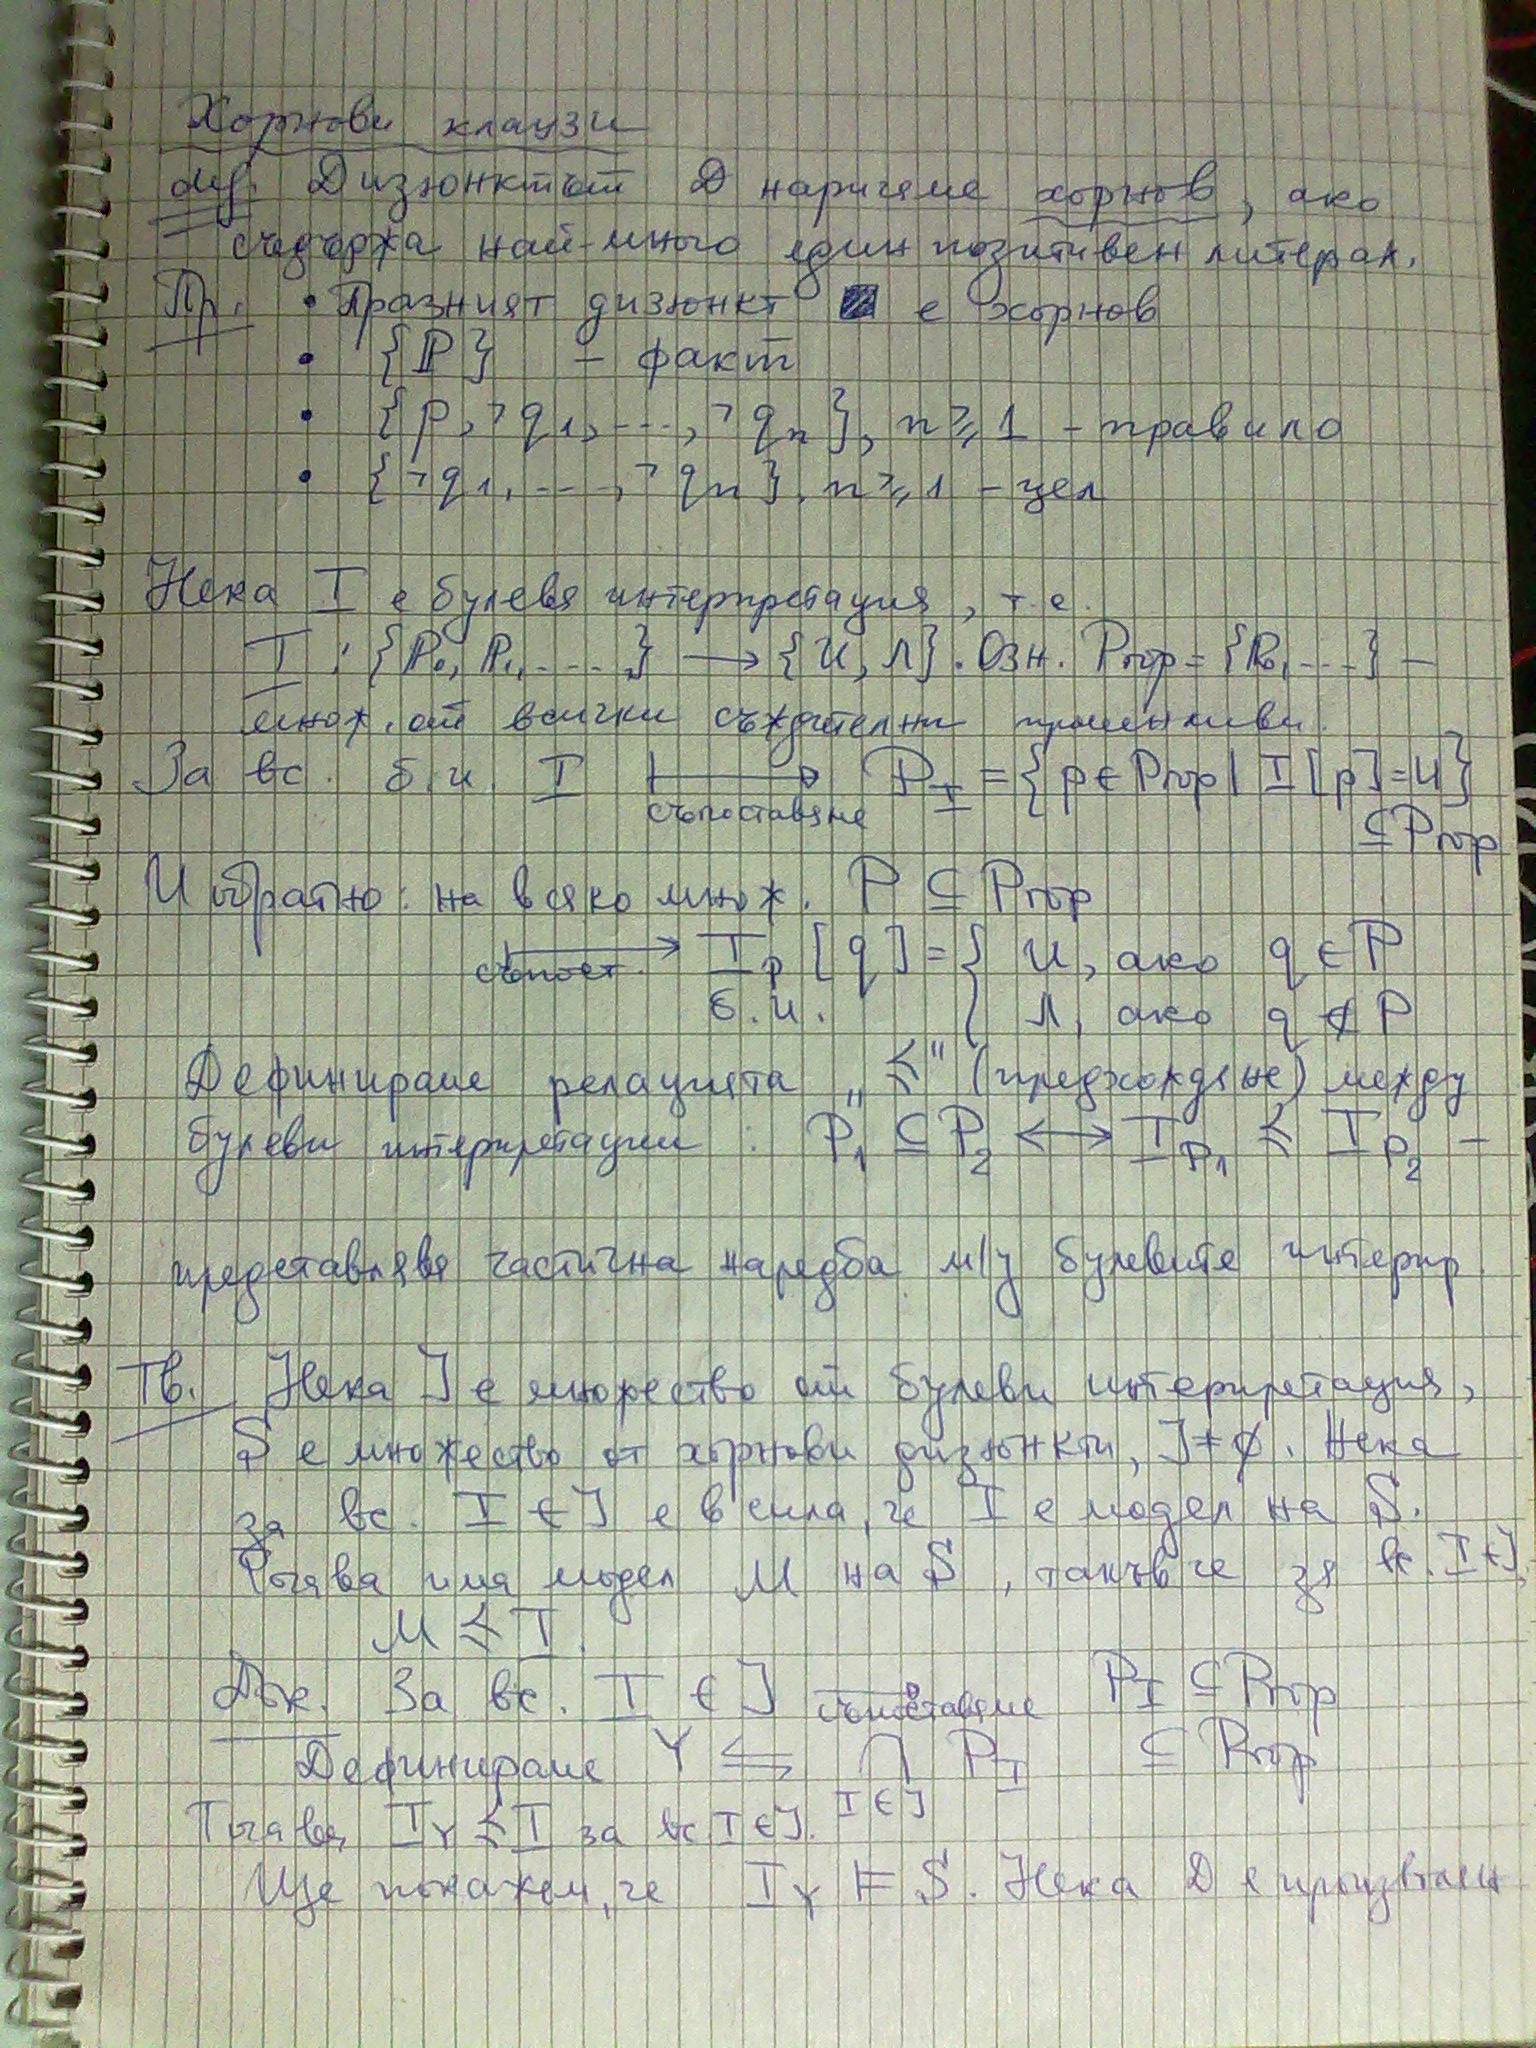 Хорнови клаузи
def. Дизюнктът D наричаме хорнов, ако
съдържа най-много един позитивен литерал.
Пр. • Празният дизюнкт ■ е хорнов
• {P} - факт
• {p, ¬q₁, ..., ¬qₙ}, n ⩾ 1 - правило
• {¬q₁, ..., ¬qₙ}, n ⩾ 1 - цел
Нека I е булева интерпретация, т.е.
I : {P₀, P₁, ...} → {И, Л}. Озн. Prop = {P₀, ...} -
множ. от всички съждителни променливи.
За вс. б.и. I ⟼ P_I = {p ∈ Prop | I[p] = И}
съпоставяме ⊆ Prop
И обратно: на всяко множ. P ⊆ Prop
съпост. ⟼ I_P [q] = { И, ако q ∈ P
б.и. { Л, ако q ∉ P
Дефинираме релацията „⩽" (предхождане) между
булеви интерпретации: P₁ ⊆ P₂ ⟷ I_P₁ ⩽ I_P₂ -
представлява частична наредба м/у булевите интерпр.
Тв. Нека J е множество от булеви интерпретация,
S е множество от хорнови дизюнкти, J ≠ ∅. Нека
за вс. I ∈ J е в сила, че I е модел на S.
Тогава има модел M на S, такъв че за вс. I ∈ J,
M ⩽ I.
Док. За вс. I ∈ J съпоставяме → P_I ⊆ Prop
Дефинираме Y ⇌ ⋂ P_I ⊆ Prop
I ∈ J
Тогава I_Y ⩽ I за вс I ∈ J.
Ще покажем, че I_Y ⊨ S. Нека D е произволен